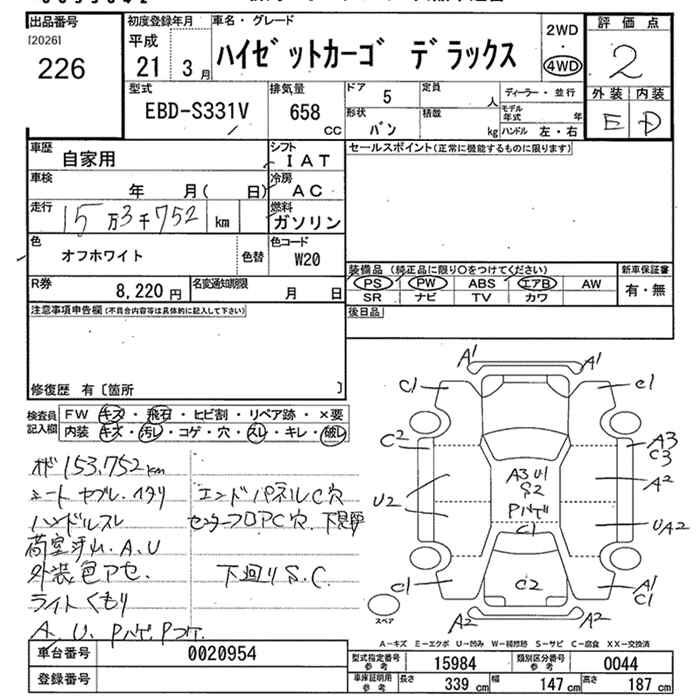 出品番号
[2026]
226
初度登録年月
平成
21 3月
車名・グレード
ハイゼットカーゴ デラックス
2WD
・
4WD
評価点
2
外装 内装
E D
型式
EBD-S331V
排気量
658
CC
ドア
5
定員
人
形状
バン
積載
kg
ディーラー・並行
モデル年式
年
ハンドル 左・右
車歴
自家用
シフト
IAT
車検
年 月( 日)
冷房
AC
走行
15万3千752 km
燃料
ガソリン
色
オフホワイト
色替
色コード
W20
R券
8,220円
名変通知期限
月 日
セールスポイント(正常に機能するものに限ります)
装備品 (純正品に限り○をつけてください)
PS PW ABS エアB AW
SR ナビ TV カワ
新車保証書
有・無
後日品
注意事項申告欄(不具合内容等は具体的に記入して下さい)
修復歴 有〔箇所 〕
検査員記入欄
FW キズ・飛石・ヒビ割・リペア跡・×要
内装 キズ・汚レ・コゲ・穴・スレ・キレ・破レ
153,752km
シート ヤブレ・イタリ
ハンドルスレ
荷室汚れ.A.U
外装色アセ.
ライトくもり
A. U. Pハゲ.Pコケ.
エンドパネルC穴
センターフロアC穴.
下回りS.C.
A1 A1
C1 C1
C2
A3
C3
A3 U1
S2
Pハゲ
C1
A2
U2
UA2
C1
C2
A1
C1
A2 A2
スペア
A-キズ E-エクボ U-凹み W-補修跡 S-サビ C-腐食 XX-交換済
車台番号
0020954
登録番号
型式指定番号
参考
15984
類別区分番号
参考
0044
車庫証明用
参考
長さ 339 cm 幅 147 cm 高さ 187 cm